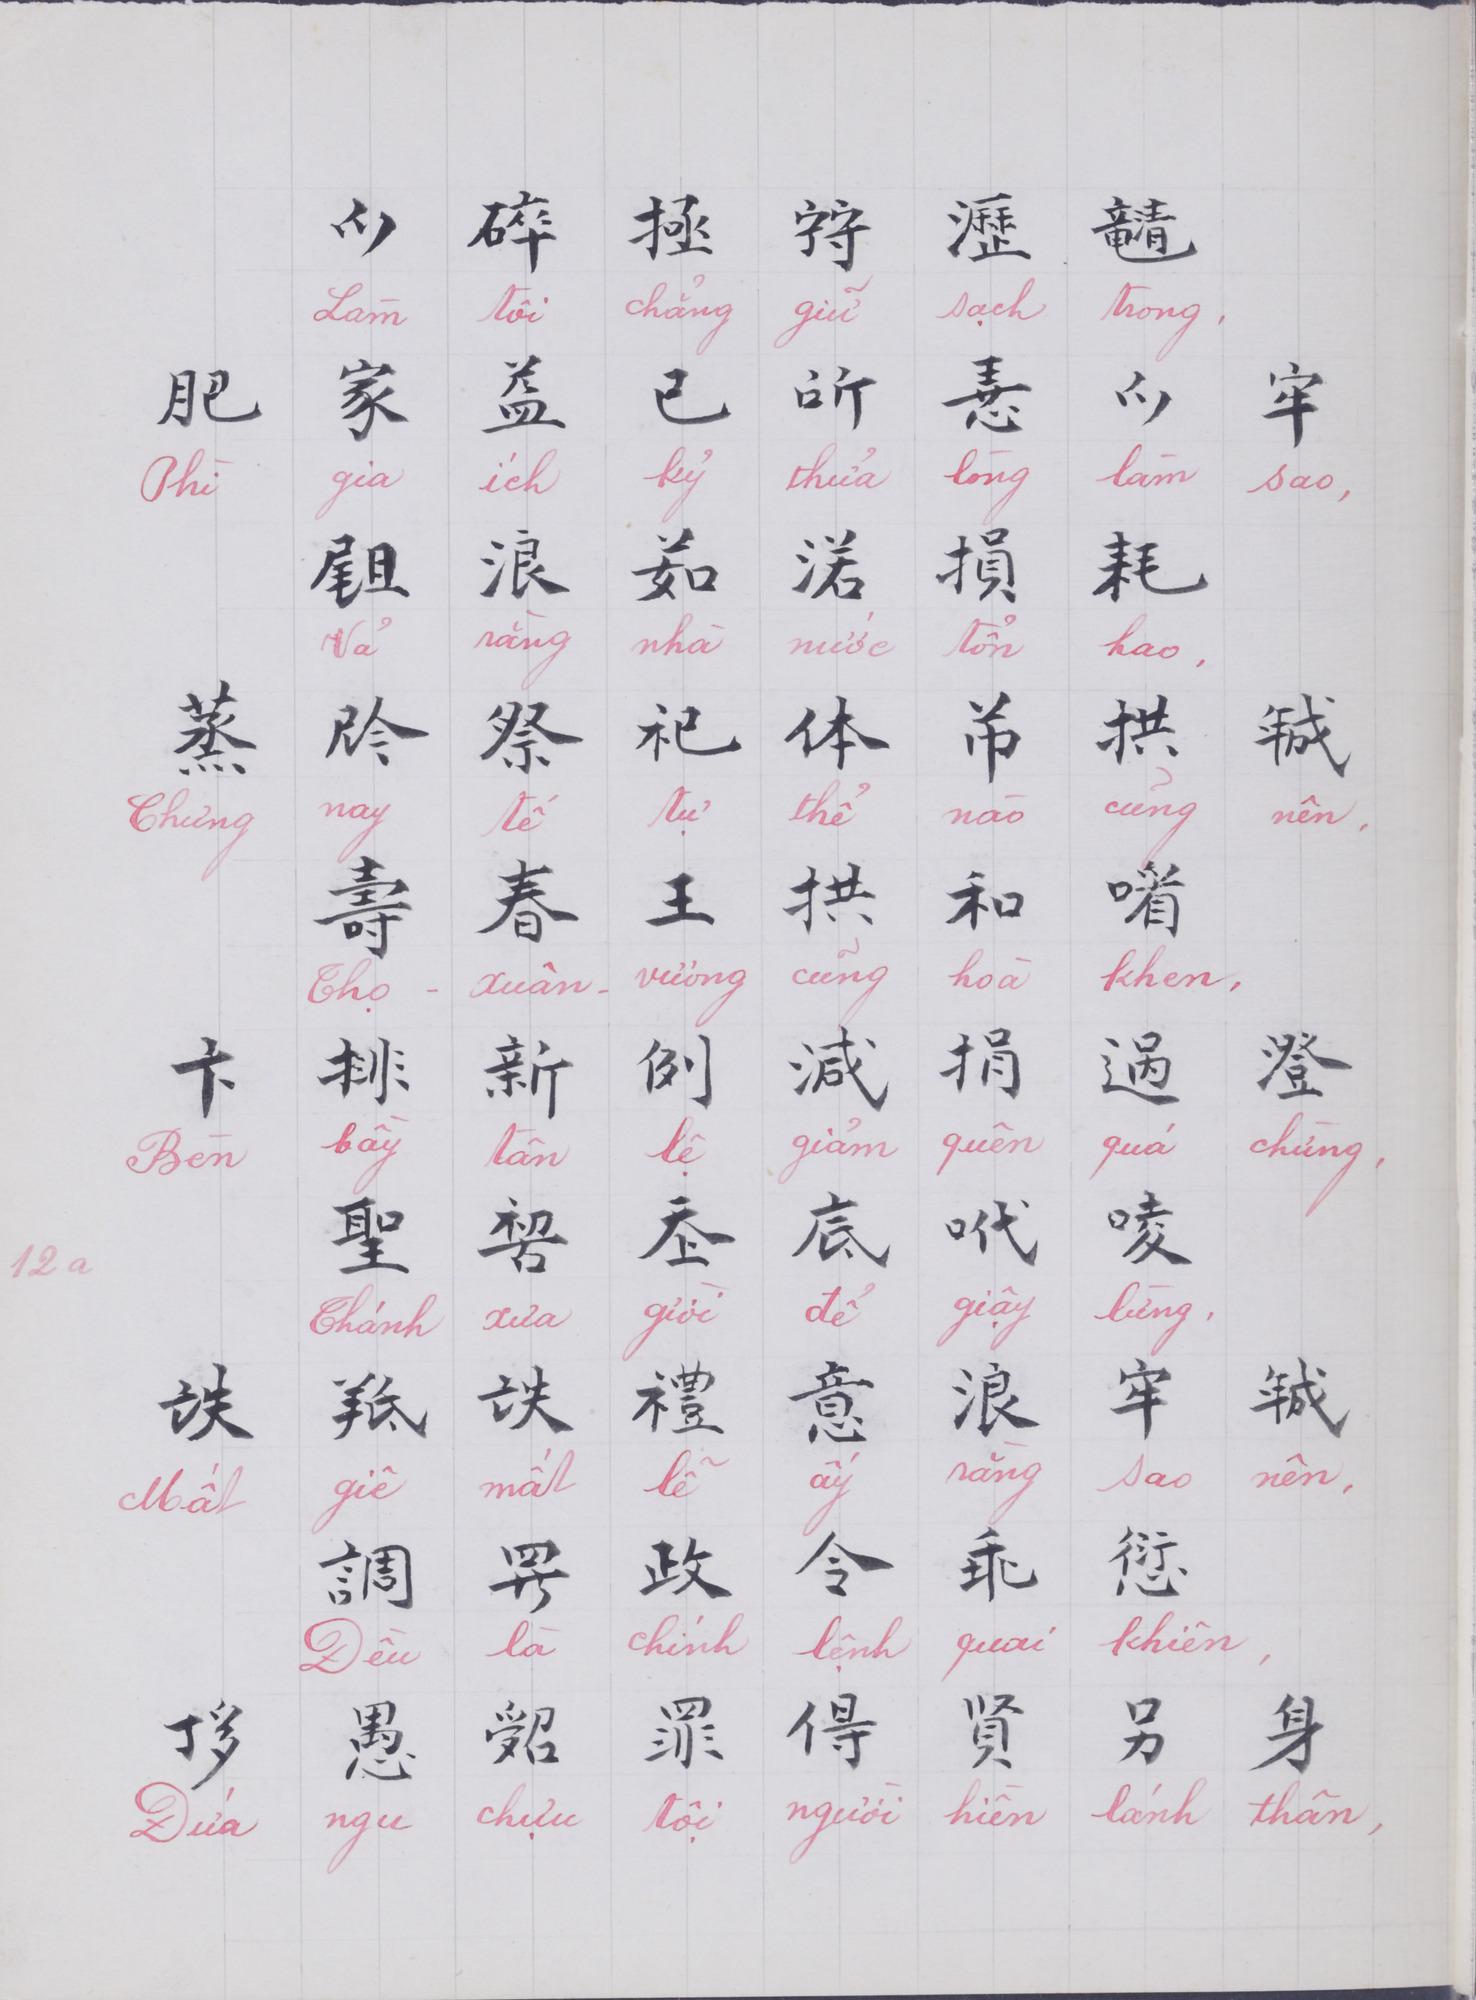 𫜵 碎 拯 𡨹 瀝 𤄯
Làm tôi chẳng giữ sạch trong,
肥 家 益 己 所 𢚸 𫜵 牢
Phì gia ích kỷ thửa lòng làm sao,
𡲤 浪 茹 渃 損 耗
Vả rằng nhà nước tổn hao,
蒸 𫢩 祭 祀 体 𱜢 拱 𢧚
Chưng nay tế tự thể nào cũng nên,
壽 春 王 拱 和 㗂
Thọ - xuân - vương cũng hoà khen,
卞 排 新 例 減 捐 過 澄
Bèn bầy tân lệ giảm quên quá chừng,
聖 𠸗 𡗶 底 𠰺 唛
12a
Thánh xưa giời để giậy lừng,
𠅍 羝 𠅍 禮 意 浪 牢 𢧚
Mất giê mất lễ ấy rằng sao nên,
調 𱺵 政 令 乖 愆
Đều là chính lệnh quai khiên,
𠀲 愚 𠹾 罪 得 賢 另 身
Đứa ngu chịu tội người hiền lánh thân,